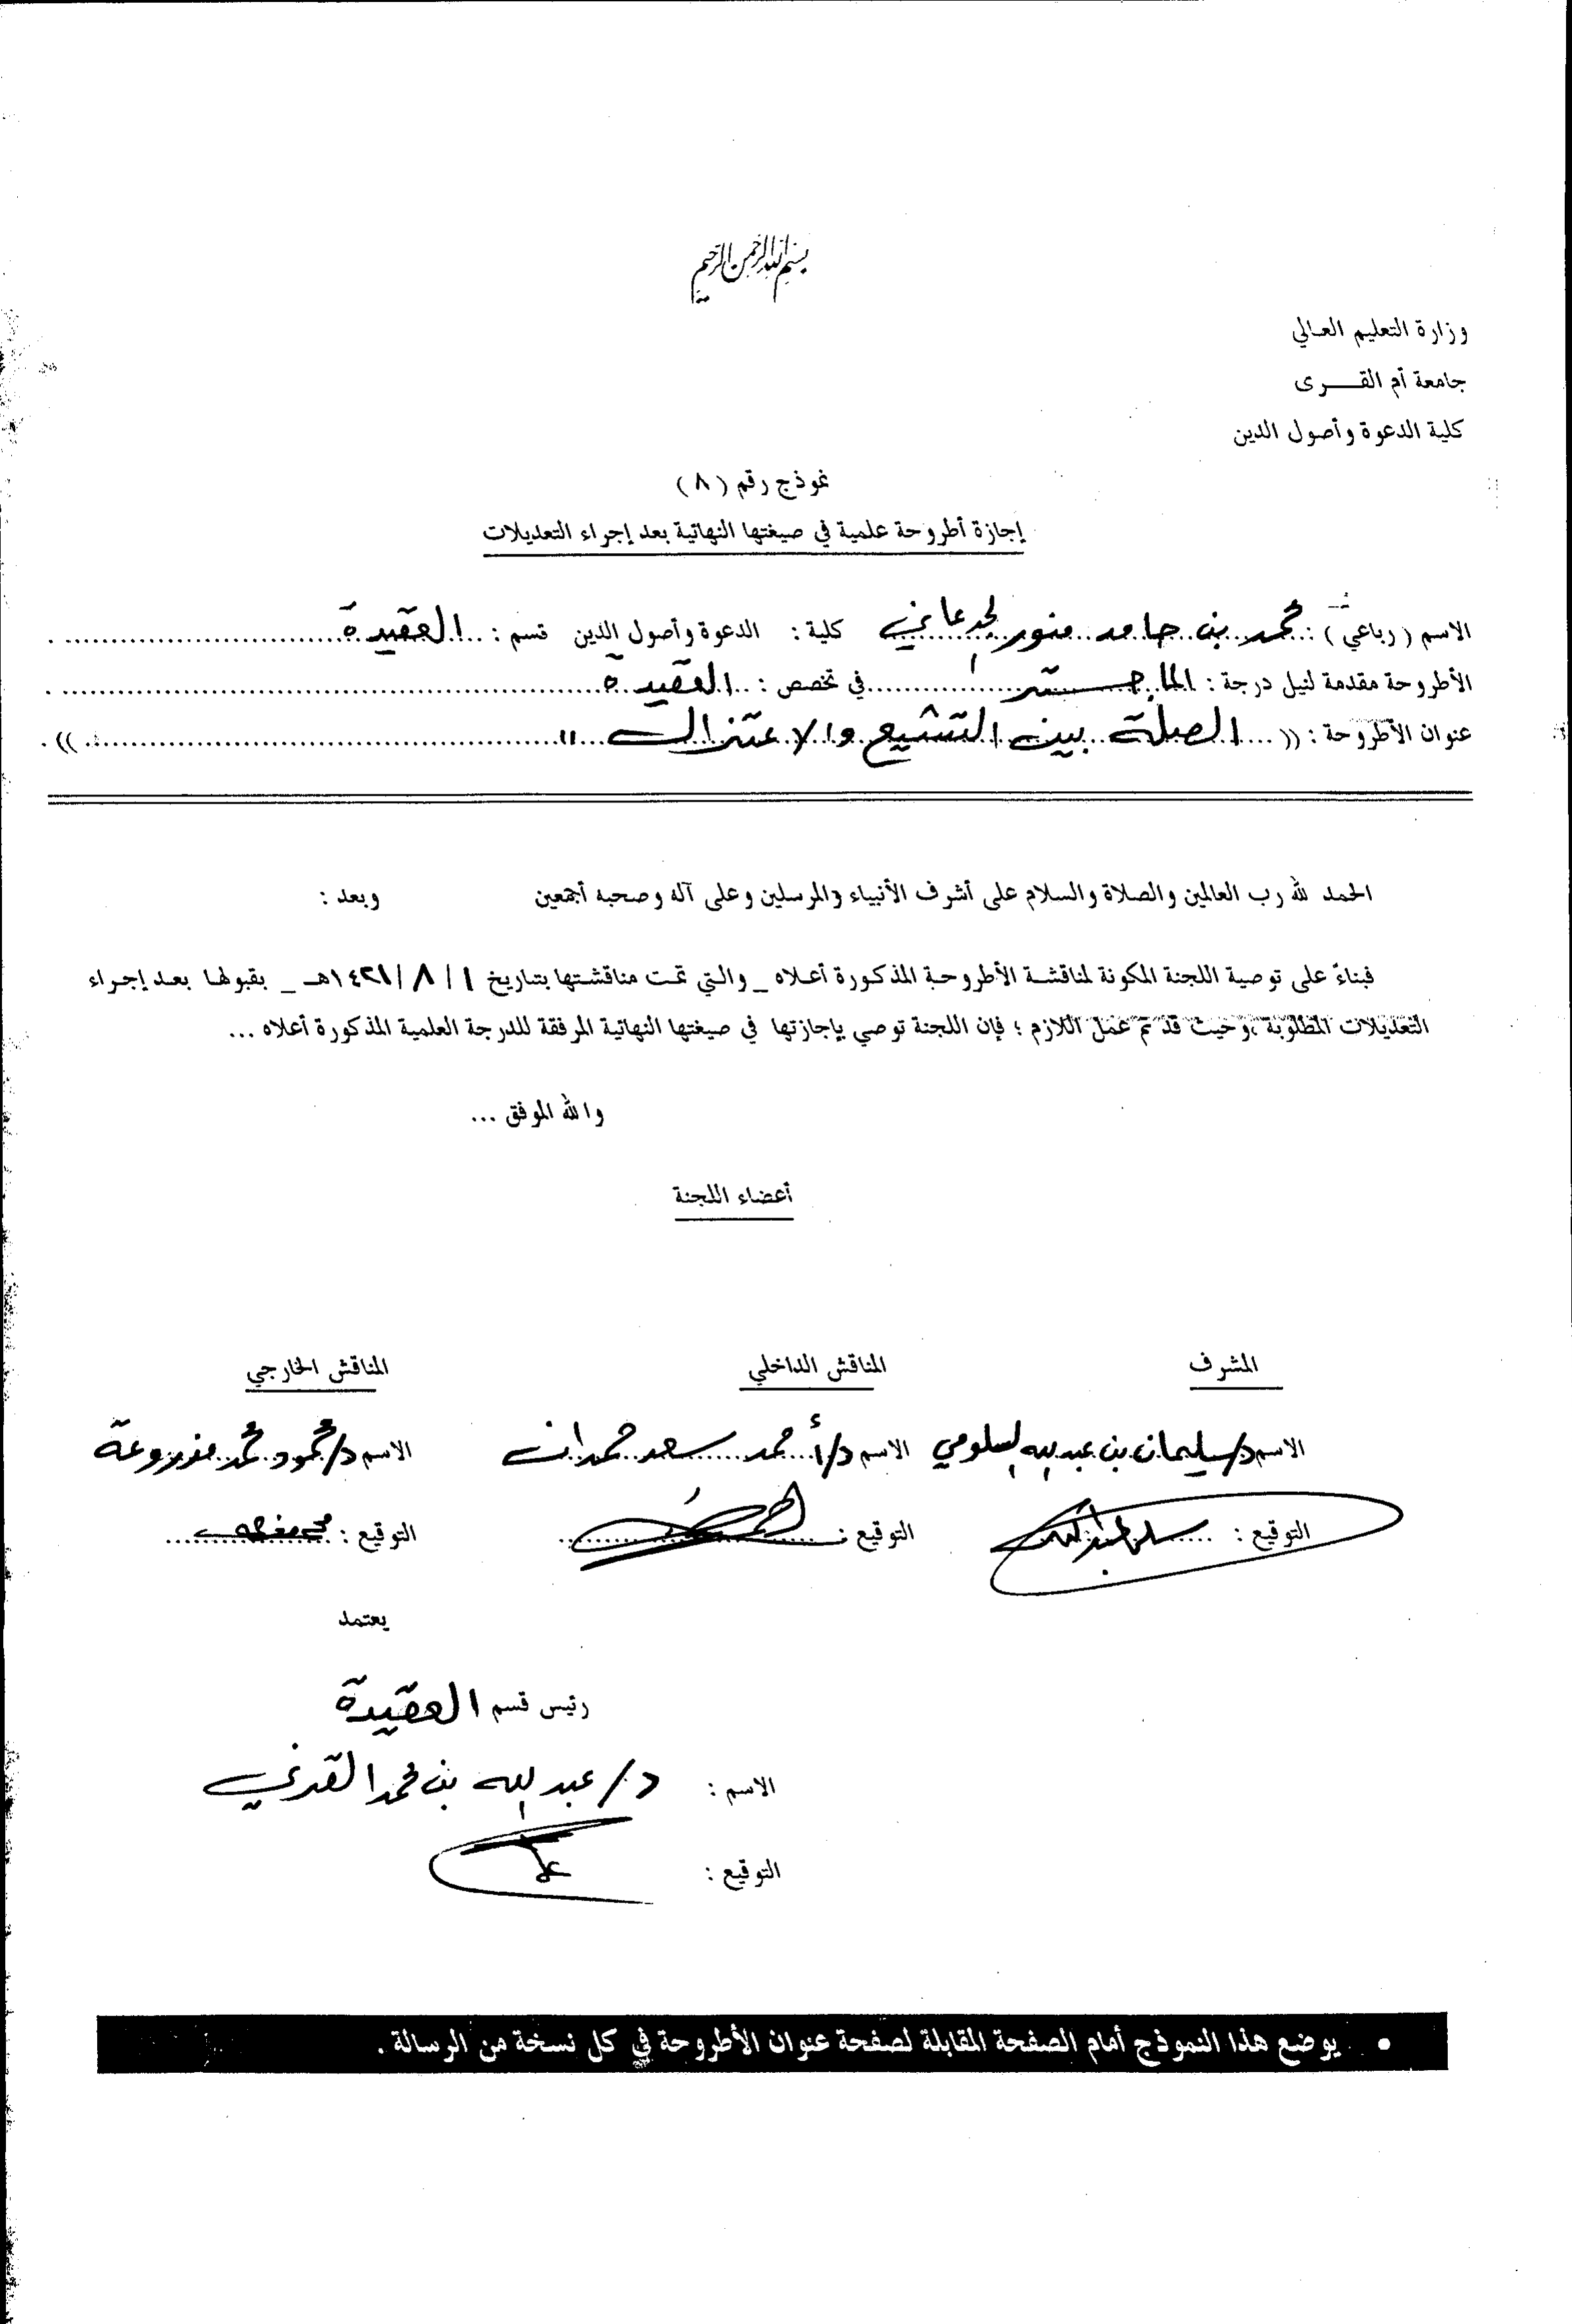 بسم الله الرحمن الرحيم
وزارة التعليم العالي
جامعة أم القــــرى
كلية الدعوة وأصول الدين
نموذج رقم ( ٨ )
إجازة أطروحة علمية في صيغتها النهائية بعد إجراء التعديلات
الاسم ( رباعي ) : محمد بن حامد منور الجدعاني كلية : الدعوة وأصول الدين قسم : العقيدة
الأطروحة مقدمة لنيل درجة : الماجستير في تخصص : العقيدة
عنوان الأطروحة : (( الصلة بين التشيع والاعتزال " )) .
الحمد لله رب العالمين والصلاة والسلام على أشرف الأنبياء والمرسلين وعلى آله وصحبه أجمعين وبعد :
فبناءً على توصية اللجنة المكونة لمناقشة الأطروحة المذكورة أعلاه _ والتي تمت مناقشتها بتاريخ ١ / ٨ / ١٤٢١هـ _ بقبولها بعد إجراء
التعديلات المطلوبة ، وحيث قد تم عمل اللازم ؛ فإن اللجنة توصي بإجازتها في صيغتها النهائية المرفقة للدرجة العلمية المذكورة أعلاه ...
والله الموفق ...
أعضاء اللجنة
المشرف المناقش الداخلي المناقش الخارجي
الاسم د/سليمان بن عبدالله السلومي الاسم د/أحمد سعد حمدان الاسم د/محمود محمد مزروعة
التوقيع : التوقيع : التوقيع :
يعتمد
رئيس قسم العقيدة
الاسم : د/ عبدالله بن محمد القرني
التوقيع :
• يوضع هذا النموذج أمام الصفحة المقابلة لصفحة عنوان الأطروحة في كل نسخة من الرسالة .